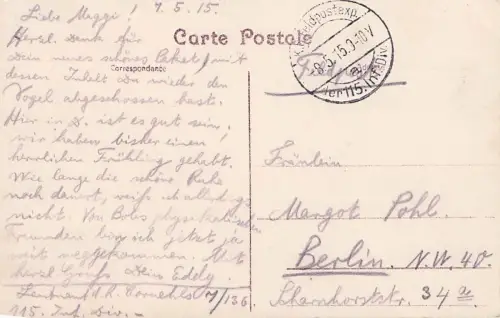 Liebe Meggi! 7.5.15.
Herzl. Dank für
Dein neues schönes Paket, mit
dessen Inhalt Du wieder den
Vogel abgeschossen hast.
Hier in D. ist es gut sein,
wir haben bisher einen
herrlichen Frühling gehabt.
Wie lange die schöne Ruhe
noch dauert, weiß ich allerdings
nicht. Von Deines physikalischen
Freunden bin ich jetzt ja
mit weggekommen. Mit
herzl Gruß Dein Eddy.
Leutnant d.R. 7/136.
115. Inf. Div.-
Carte Postale
Correspondance
K.D. Feldpostexp.
8.5.15. 9-10V
a
der 115. Inf. Div.
Feldpost
Fräulein
Margot Pohl.
Berlin. N.W. 40.
Scharnhorststr. 34 a